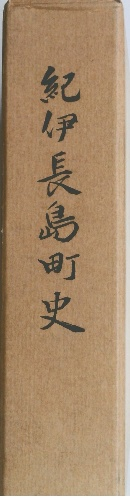 紀伊長島町史